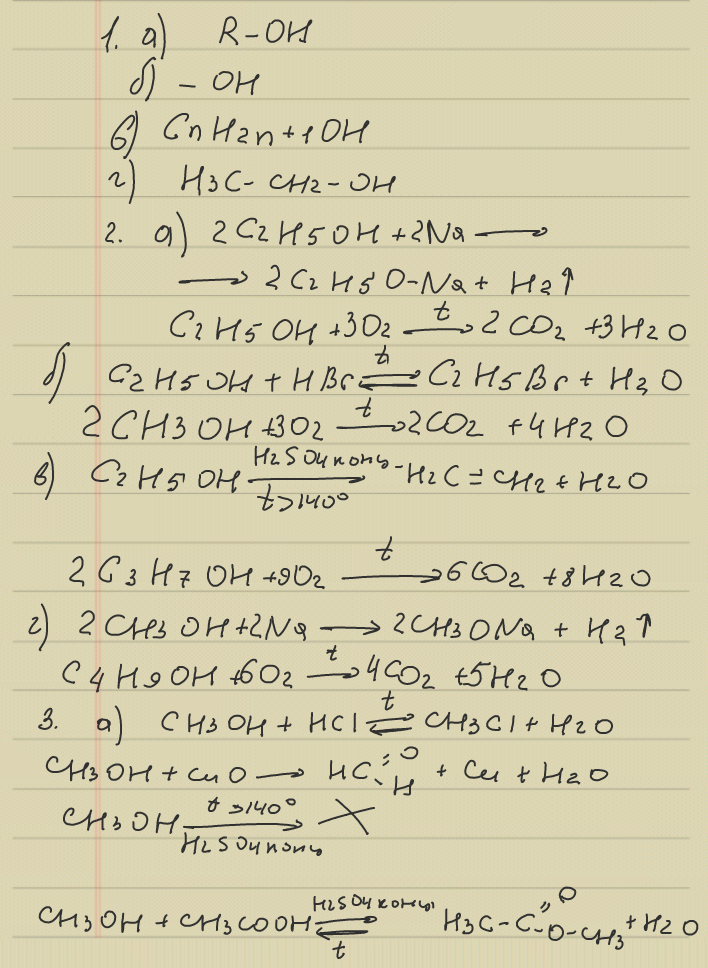 1. а) R-OH
б) - OH
в) CnH2n+1OH
г) H3C-CH2-OH
2. а) 2C2H5OH+2Na⟶
⟶2C2H5O-Na+H2↑
C2H5OH+3O2 t⟶ 2CO2+3H2O
б) C2H5OH+HBr t⇌ C2H5Br+H2O
2CH3OH+3O2 t⟶ 2CO2+4H2O
в) C2H5OH H2SO4конц⟶t>140° -H2C=CH2+H2O
2C3H7OH+9O2 t⟶ 6CO2+8H2O
г) 2CH3OH+2Na⟶2CH3ONa+H2↑
C4H9OH+6O2 t⟶ 4CO2+5H2O
3. а) CH3OH+HCl t⇌ CH3Cl+H2O
CH3OH+CuO⟶HC=O-H+Cu+H2O
CH3OH t>140°⟶H2SO4конц ✕
CH3OH+CH3COOH H2SO4конц⇌t H3C-C=O-O-CH3+H2O